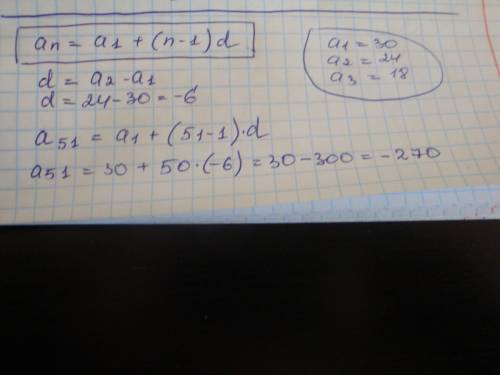 an = a1 + (n-1)d
a1 = 30
a2 = 24
a3 = 18
d = a2 - a1
d = 24 - 30 = -6
a51 = a1 + (51-1)·d
a51 = 30 + 50·(-6) = 30 - 300 = -270